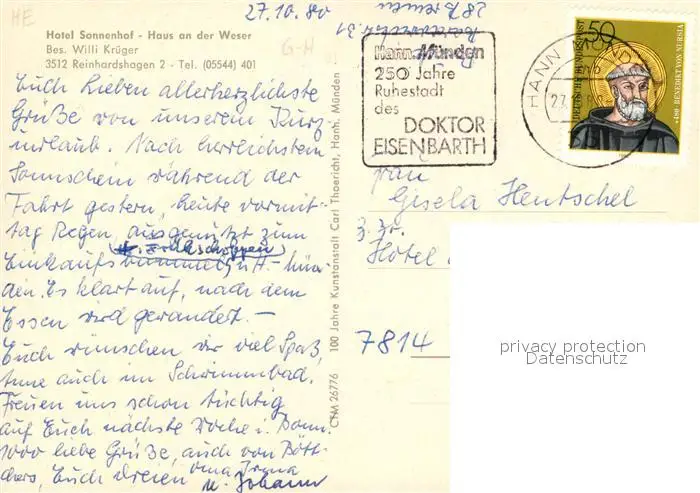 ME
27.10.80
G-H
Hotel Sonnenhof - Haus an der Weser
Bes. Willi Krüger
3512 Reinhardshagen 2 - Tel. (05544) 401
Euch Lieben allerherzlichste
Grüße von unserem Kurz
urlaub. Nach herrlichstem
Sonnschein während der
Fahrt gestern, heute vormit-
tag Regen, ausgenützt zum
(u. Frühschoppen)
Einkaufsbummel
ein. Es klart auf, nach dem
Essen wird gewandert. -
Euch wünschen wir viel Spaß,
auch im Schwimmbad.
Freuen uns schon tüchtig
auf Euch nächste Woche i. Bonn.
1000 liebe Grüße, auch von Bött-
chers, Euch dreien Oma Irma
u. Johann
CTM 26776 100 Jahre Kunstanstalt Carl Thoericht, Hann. Münden
28 Bremen
Hann. Münden
250 Jahre
Ruhestadt
des
DOKTOR
EISENBARTH
HANN. MÜNDEN
27
50
DEUTSCHE BUNDESPOST
*480 BENEDIKT VON NURSIA
Frau
Gisela Hentschel
z. Zt.
Hotel
7814
privacy protection
Datenschutz